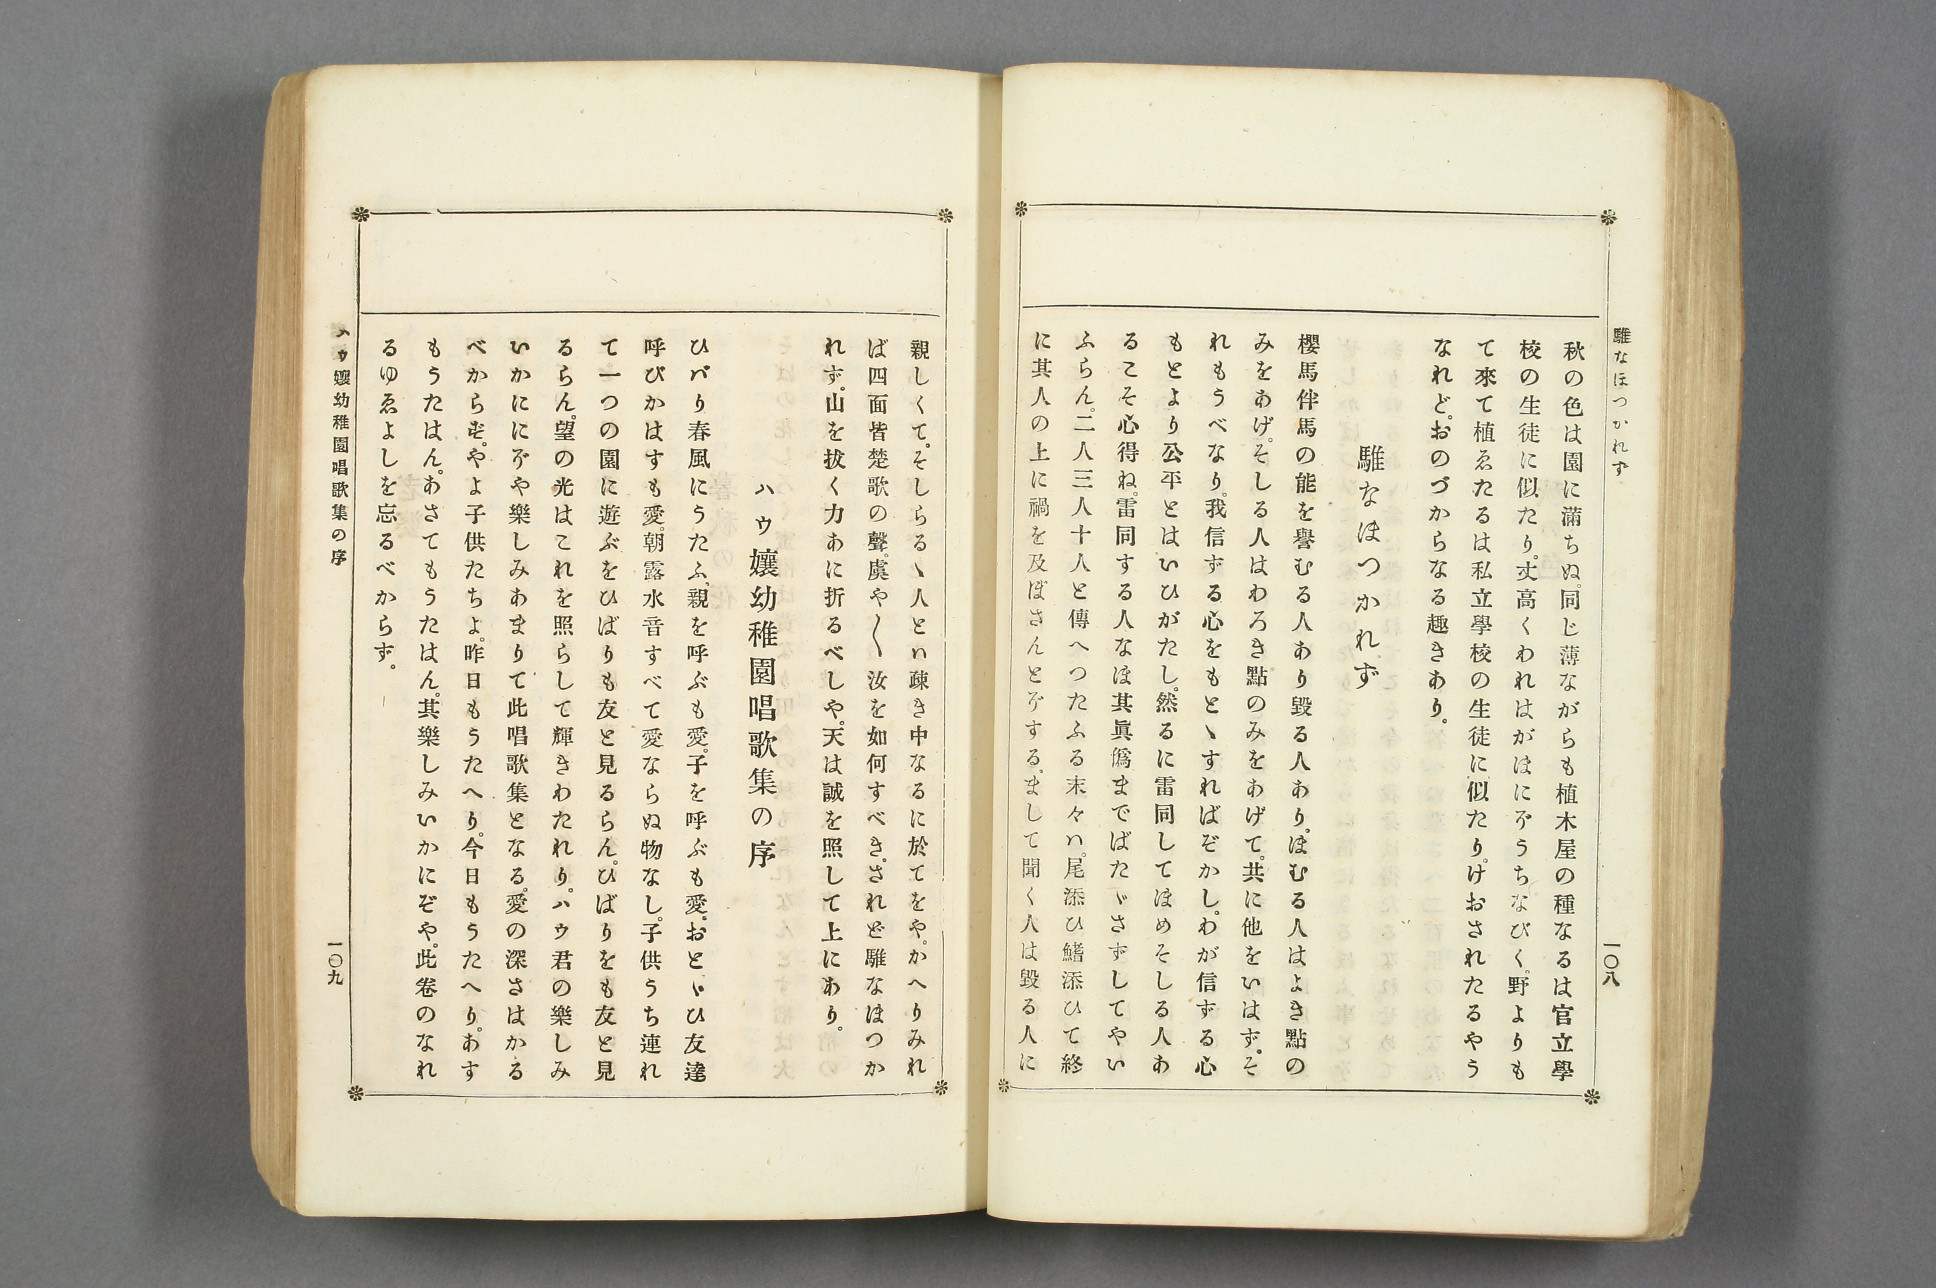 騅なほつかれず
一〇八
秋の色は園に滿ちぬ。同じ薄ながらも植木屋の種なるは官立學
校の生徒に似たり。丈高くわれはがほにぞうちなびく。野よりも
て來て植ゑたるは私立學校の生徒に似たり。けおされたるやう
なれど。おのづからなる趣きあり。
騅なほつかれず
櫻馬伴馬の能を譽むる人あり毀る人あり。ほむる人はよき點の
みをあげ。そしる人はわろき點のみをあげて。共に他をいはず。そ
れもうべなり。我信ずる心をもとゝすればぞかし。わが信ずる心
もとより公平とはいひがたし。然るに雷同してほめそしる人あ
るこそ心得ね。雷同する人なほ其眞僞までばたゞさずしてやい
ふらん。二人三人十人と傳へつたふる末々ハ。尾添ひ鰭添ひて終
に其人の上に禍を及ぼさんとぞする。まして聞く人は毀る人に
親しくて。そしらるゝ人とハ疎き中なるに於てをや。かへりみれ
ば四面皆楚歌の聲。虞や〳〵汝を如何すべき。されど騅なほつか
れず。山を拔く力あに折るべしや。天は誠を照して上にあり。
ハウ孃幼稚園唱歌集の序
ひバり春風にうたふ。親を呼ぶも愛。子を呼ぶも愛。おとゝひ友達
呼びかはすも愛。朝露水音すべて愛ならぬ物なし。子供うち連れ
て一つの園に遊ぶをひばりも友と見るらん。ひばりをも友と見
るらん。望の光はこれを照らして輝きわたれり。ハウ君の樂しみ
いかににぞや樂しみあまりて此唱歌集となる。愛の深さはかる
べからず。やよ子供たちよ。昨日もうたへり。今日もうたへり。あす
もうたはん。あさてもうたはん。其樂しみいかにぞや。此卷のなれ
るゆゑよしを忘るべからず。
ハウ孃幼稚園唱歌集の序
一〇九